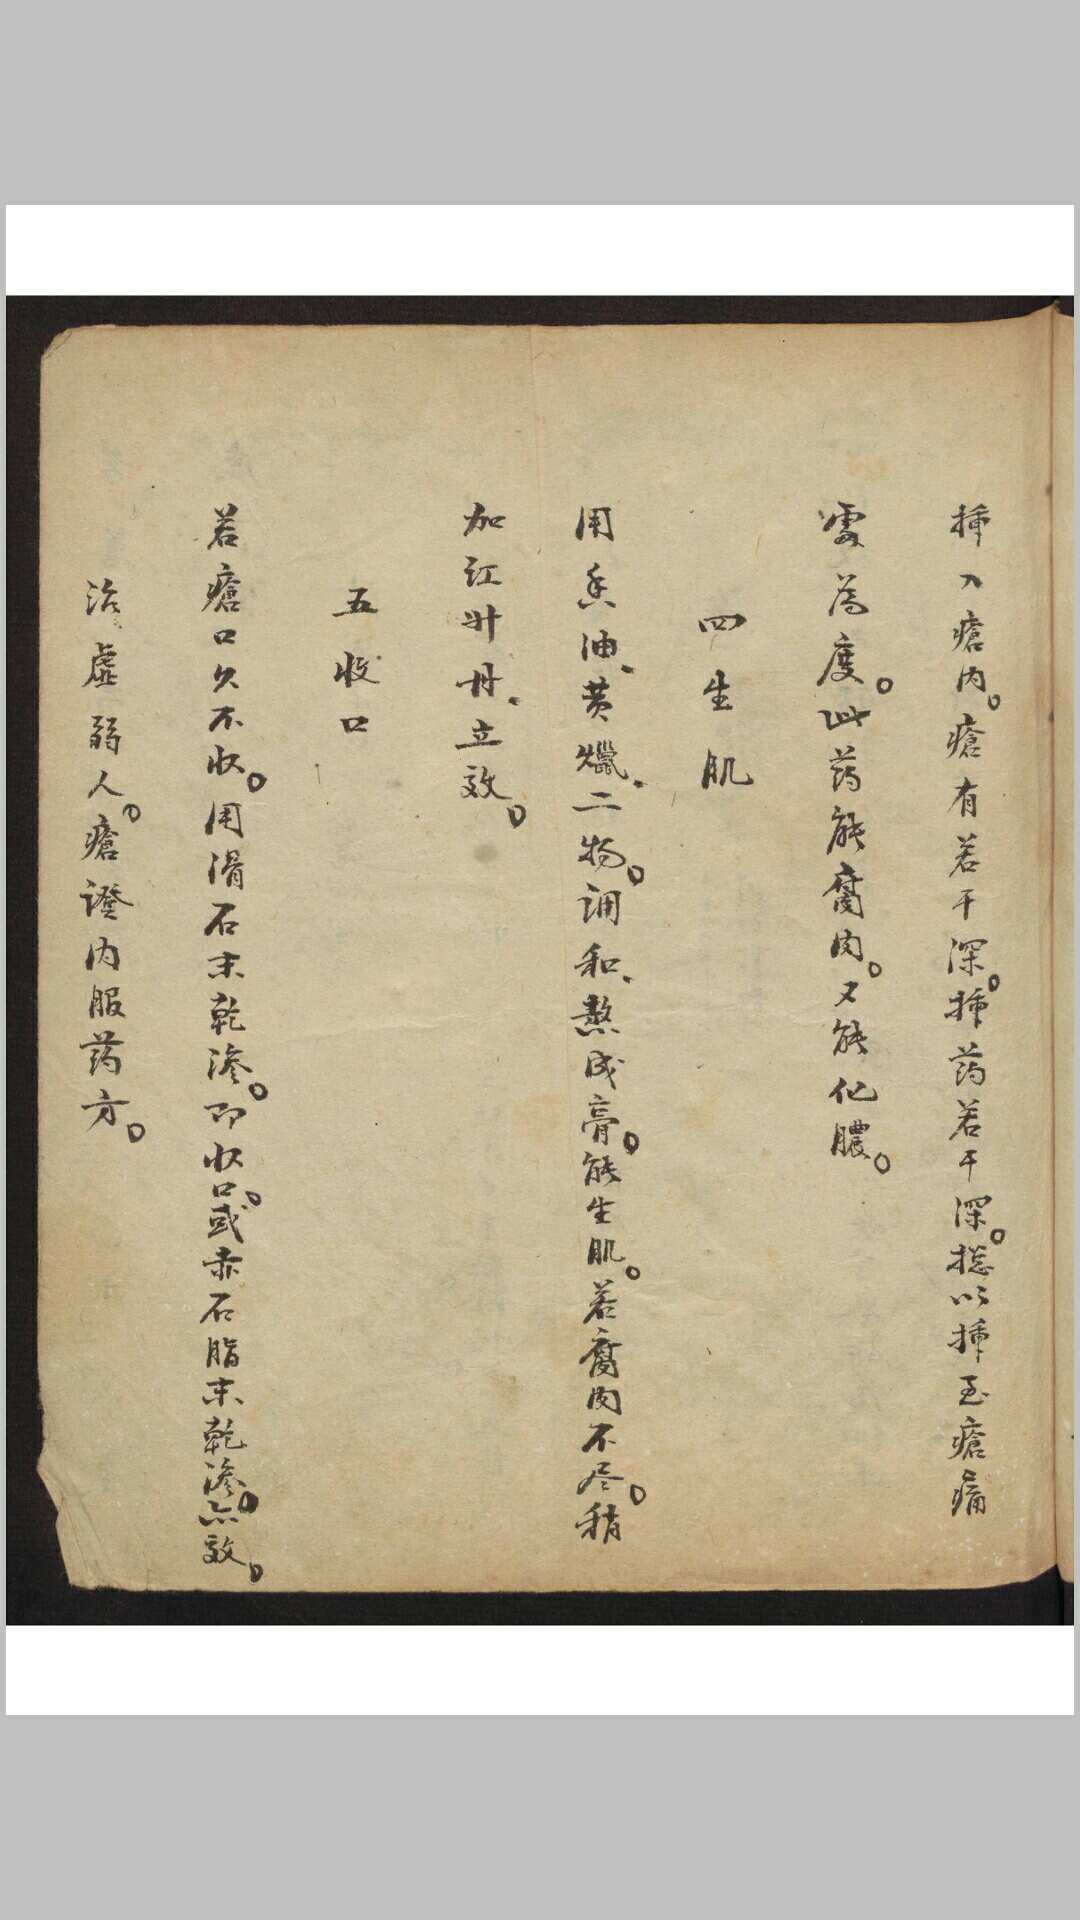 插入瘡内。瘡有若干深。插药若干深。揔以插至瘡痛
處為度。此药能腐肉。又能化膿。
四生肌
用香油、黄蠟、二物。调和、熬成膏。能生肌。若腐肉不尽。稍
加红升丹、立效。
五收口
若瘡口久不收。用滑石末乾滲。即收口。或赤石脂末乾滲。亦效。
治虛弱人。瘡證内服药方。